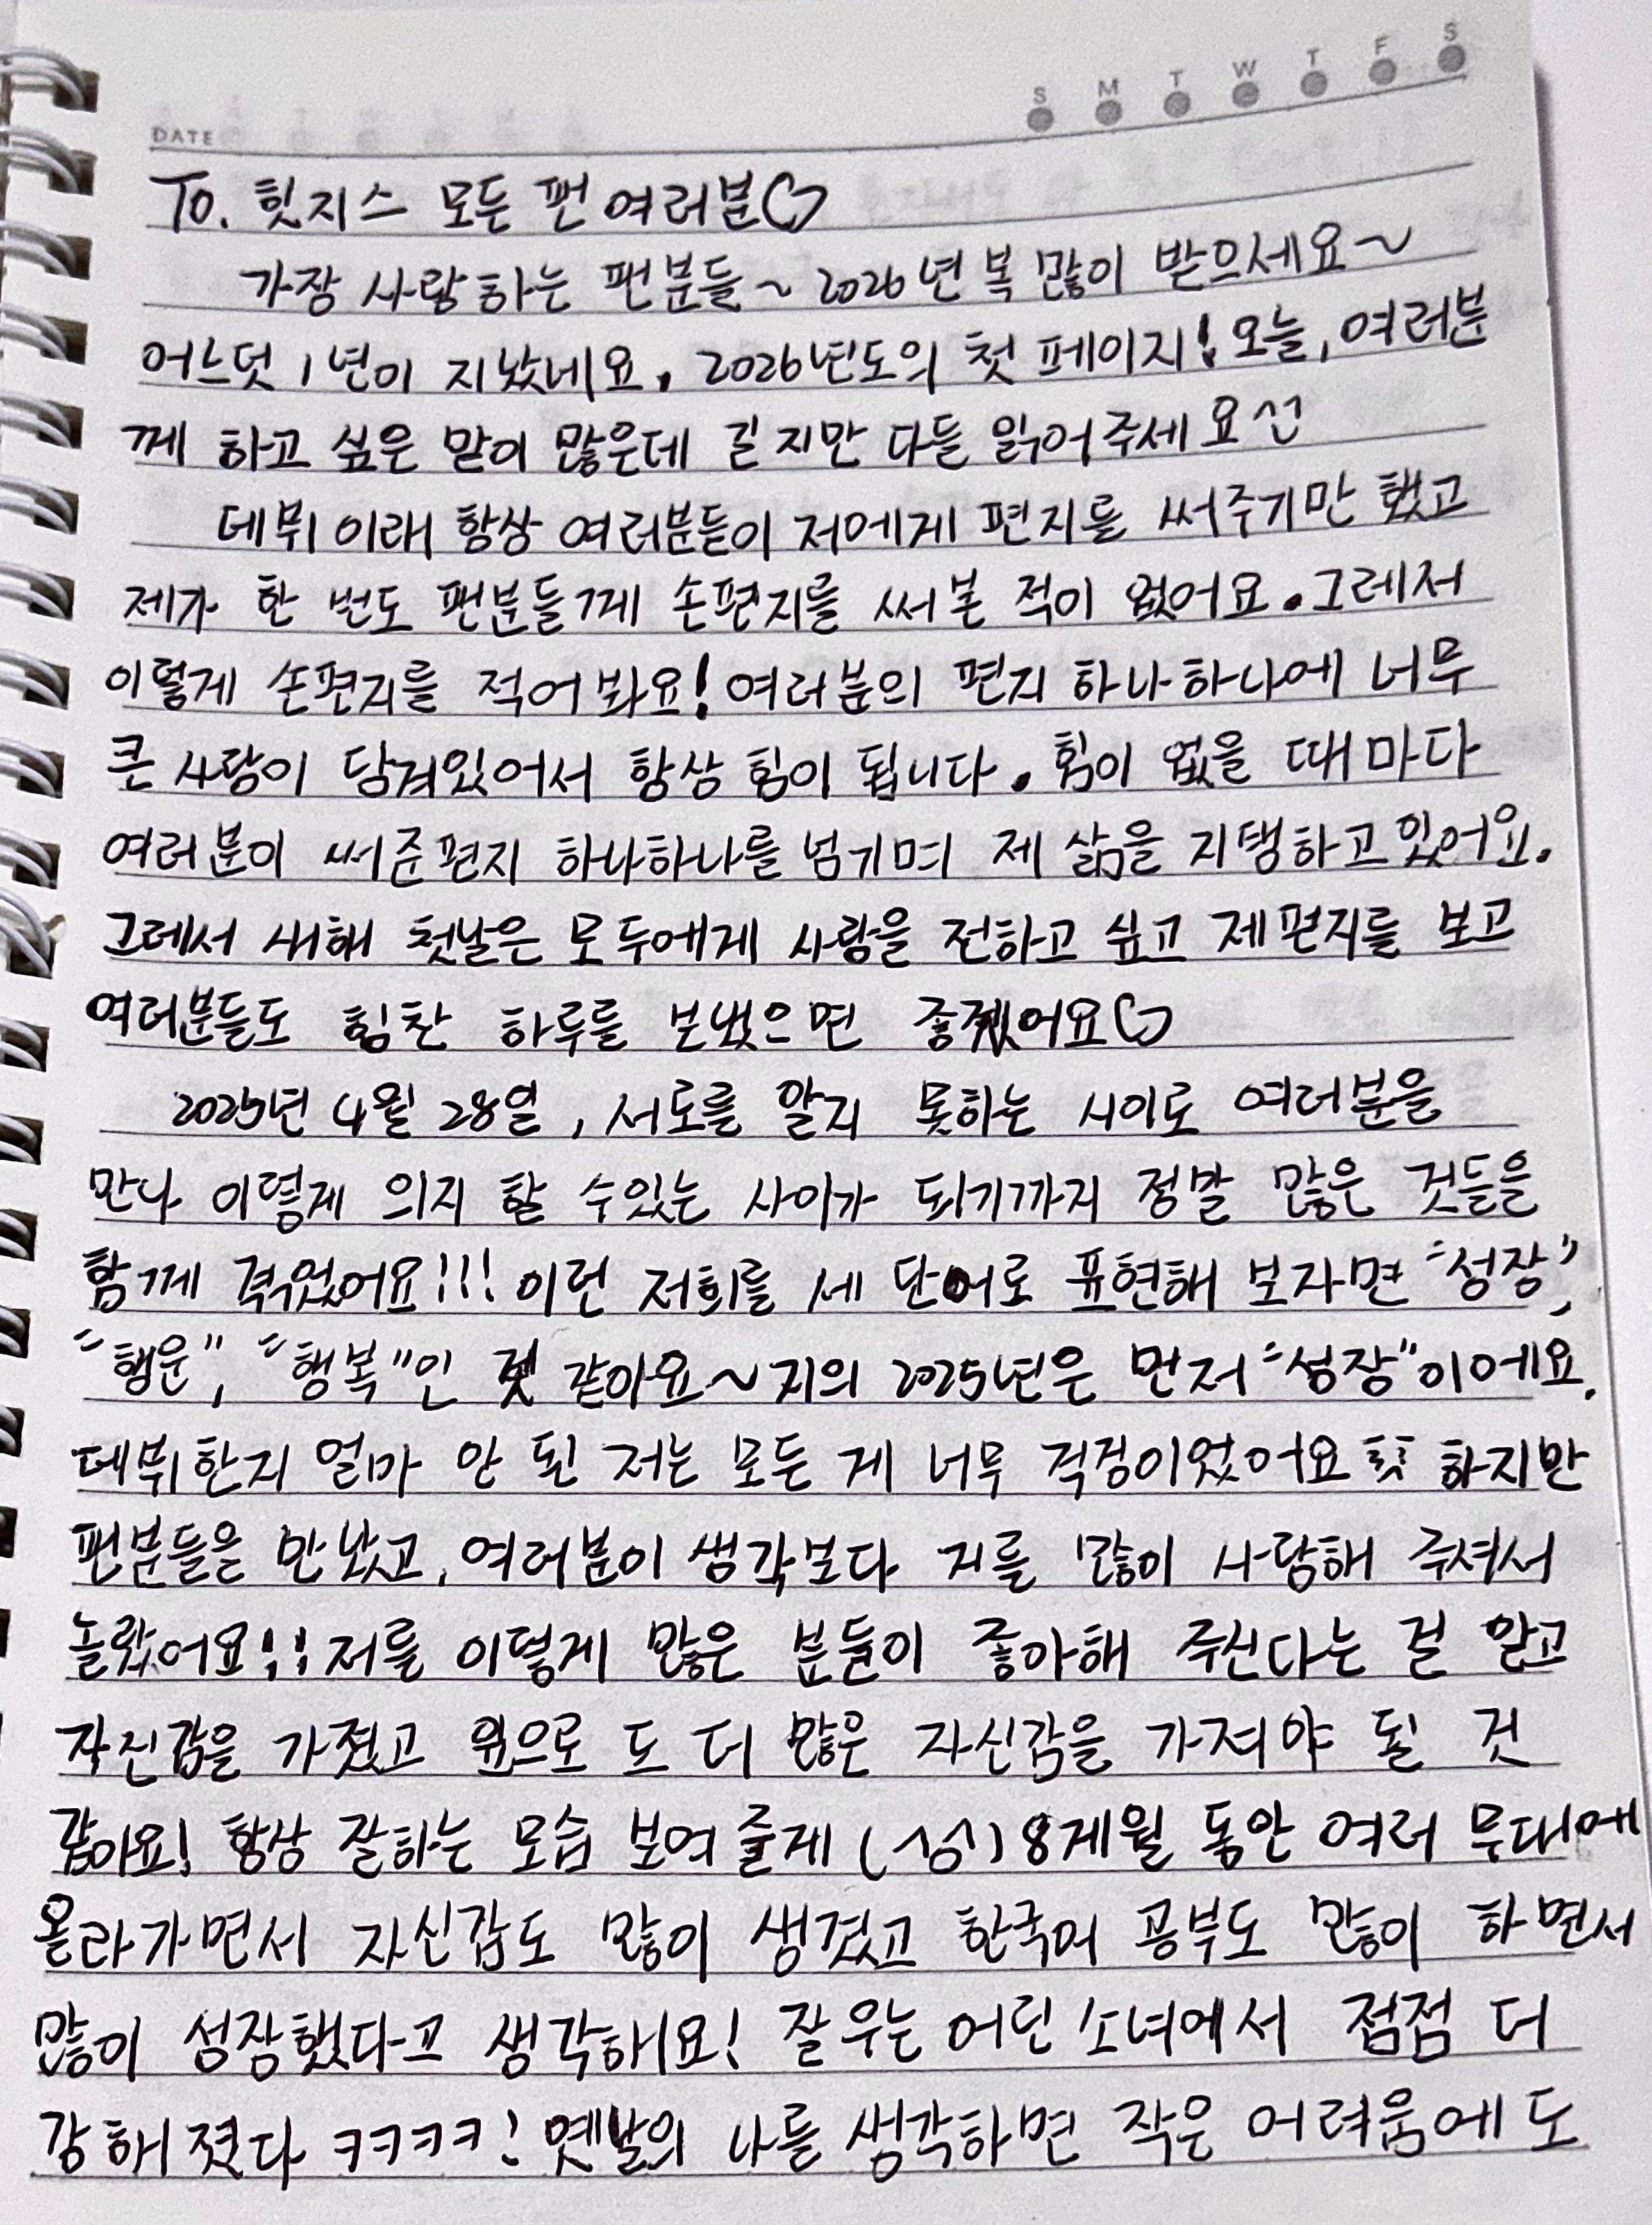 DATE
S M T W T F S
To. 힛지스 모든 팬 여러분♡
가장 사랑하는 팬분들~2026년 복 많이 받으세요~
어느덧 1년이 지났네요. 2026년도의 첫 페이지! 오늘, 여러분
께 하고 싶은 말이 많은데 길지만 다들 읽어주세요
데뷔 이래 항상 여러분들이 저에게 편지를 써주기만 했고
제가 한 번도 팬분들께 손편지를 써본 적이 없어요. 그레서
이렇게 손편지를 적어 봐요! 여러분의 편지 하나하나에 너무
큰 사랑이 담겨있어서 항상 힘이 됩니다. 힘이 없을 때마다
여러분이 써준편지 하나하나를 넘기며 제 삶을 지탱하고 있어요.
그레서 새해 첫날은 모두에게 사랑을 전하고 싶고 제편지를 보고
여러분들도 힘찬 하루를 보냈으면 좋겠어요♡
2025년 4월 28일, 서로를 알지 못하는 사이로 여러분을
만나 이렇게 의지 할 수있는 사이가 되기까지 정말 많은 것들을
함께 겪었어요!!! 이런 저희를 세 단어로 표현해 보자면 "성장",
"행운", "행복"인 것 같아요~ 저의 2025년은 먼저 "성장"이에요.
데뷔한지 얼마 안 된 저는 모든 게 너무 걱정이었어요 ㅠㅠ 하지만
팬분들을 만났고, 여러분이 생각보다 저를 많이 사랑해 주셔서
놀랐어요!!! 저를 이렇게 많은 분들이 좋아해 주신다는 걸 알고
자신감을 가졌고 앞으로 도 더 많은 자신감을 가져야 될 것
같아요! 항상 잘하는 모습 보여줄게 (^ㅎ^) 8개월 동안 여러 무대에
올라가면서 자신감도 많이 생겼고 한국어 공부도 많이 하면서
많이 성장했다고 생각해요! 잘 우는 어린 소녀에서 점점 더
강해졌다 ㅋㅋㅋㅋ! 옛날의 나를 생각하면 작은 어려움에도